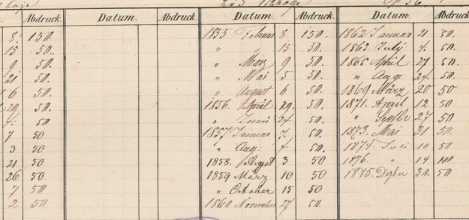 Abdruck. Datum. Abdruck. Datum. Abdruck. Datum. Abdruck.
3. 150. 1855 Februar 8 150. 1862 Januar 4 50.
15 50. " " 15 50. 1862 July 4. 50.
9 50. " März 9 50. 1865 April 27 50.
21 50. " Mai 5 50. " Aug. 24. 50.
6 50. " August 6 50. 1869 März 20 50
29 50. 1856. April 29. 50. 1871. April 12 50
50. " 50. " 27 50
7 50 1857 Januar 7. 50. 1873. Mai 21 50.
3 50 " Aug. 50. 1875. Juli 10 50
21 50 1858. August 3 50 1876. " 14 100
26 50 1859 März 10 50 1885 50.
7 50 " October 15 50
2 50 1860 November 27 50